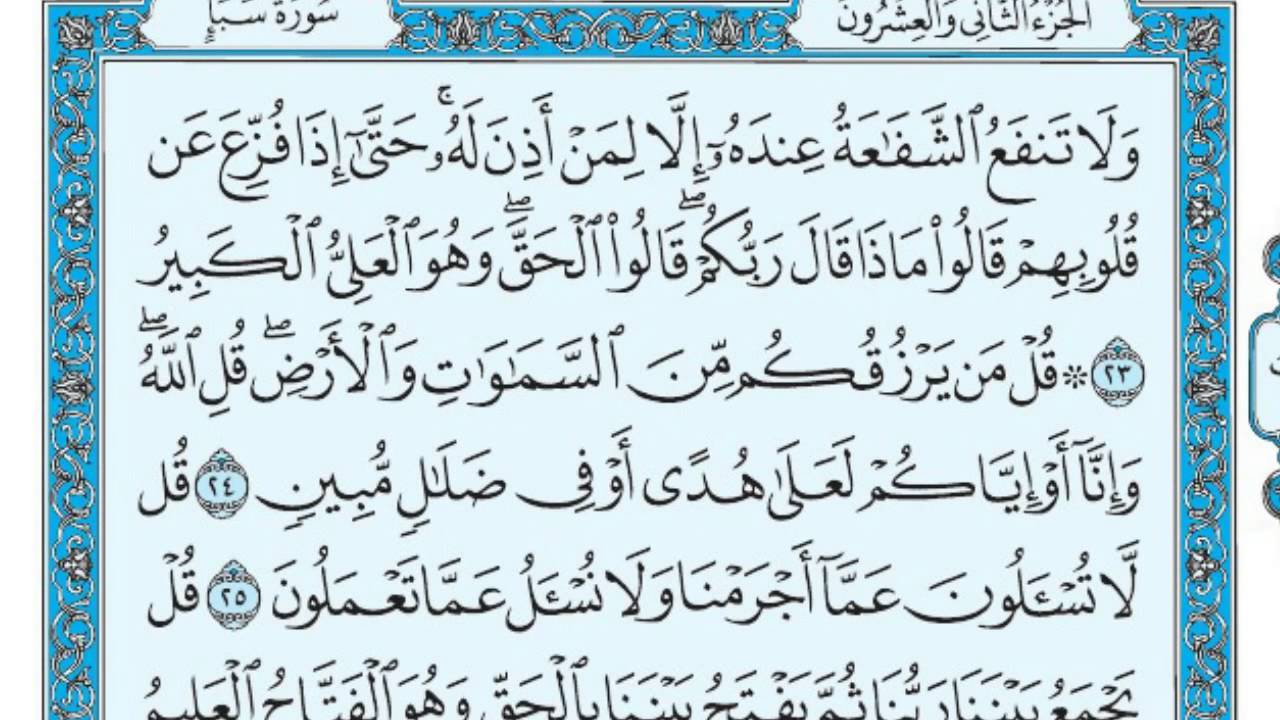 الجزء الثاني والعشرون
سورة سبإ
وَلَا تَنفَعُ ٱلشَّفَٰعَةُ عِندَهُۥٓ إِلَّا لِمَنْ أَذِنَ لَهُۥ ۚ حَتَّىٰٓ إِذَا فُزِّعَ عَن
قُلُوبِهِمْ قَالُوا۟ مَاذَا قَالَ رَبُّكُمْ ۖ قَالُوا۟ ٱلْحَقَّ ۖ وَهُوَ ٱلْعَلِىُّ ٱلْكَبِيرُ
٢٣ * قُلْ مَن يَرْزُقُكُم مِّنَ ٱلسَّمَٰوَٰتِ وَٱلْأَرْضِ ۖ قُلِ ٱللَّهُ ۖ
وَإِنَّآ أَوْ إِيَّاكُمْ لَعَلَىٰ هُدًى أَوْ فِى ضَلَٰلٍ مُّبِينٍ ٢٤ قُل
لَّا تُسْـَٔلُونَ عَمَّآ أَجْرَمْنَا وَلَا نُسْـَٔلُ عَمَّا تَعْمَلُونَ ٢٥ قُلْ
يَجْمَعُ بَيْنَنَا رَبُّنَا ثُمَّ يَفْتَحُ بَيْنَنَا بِٱلْحَقِّ وَهُوَ ٱلْفَتَّاحُ ٱلْعَلِيمُ